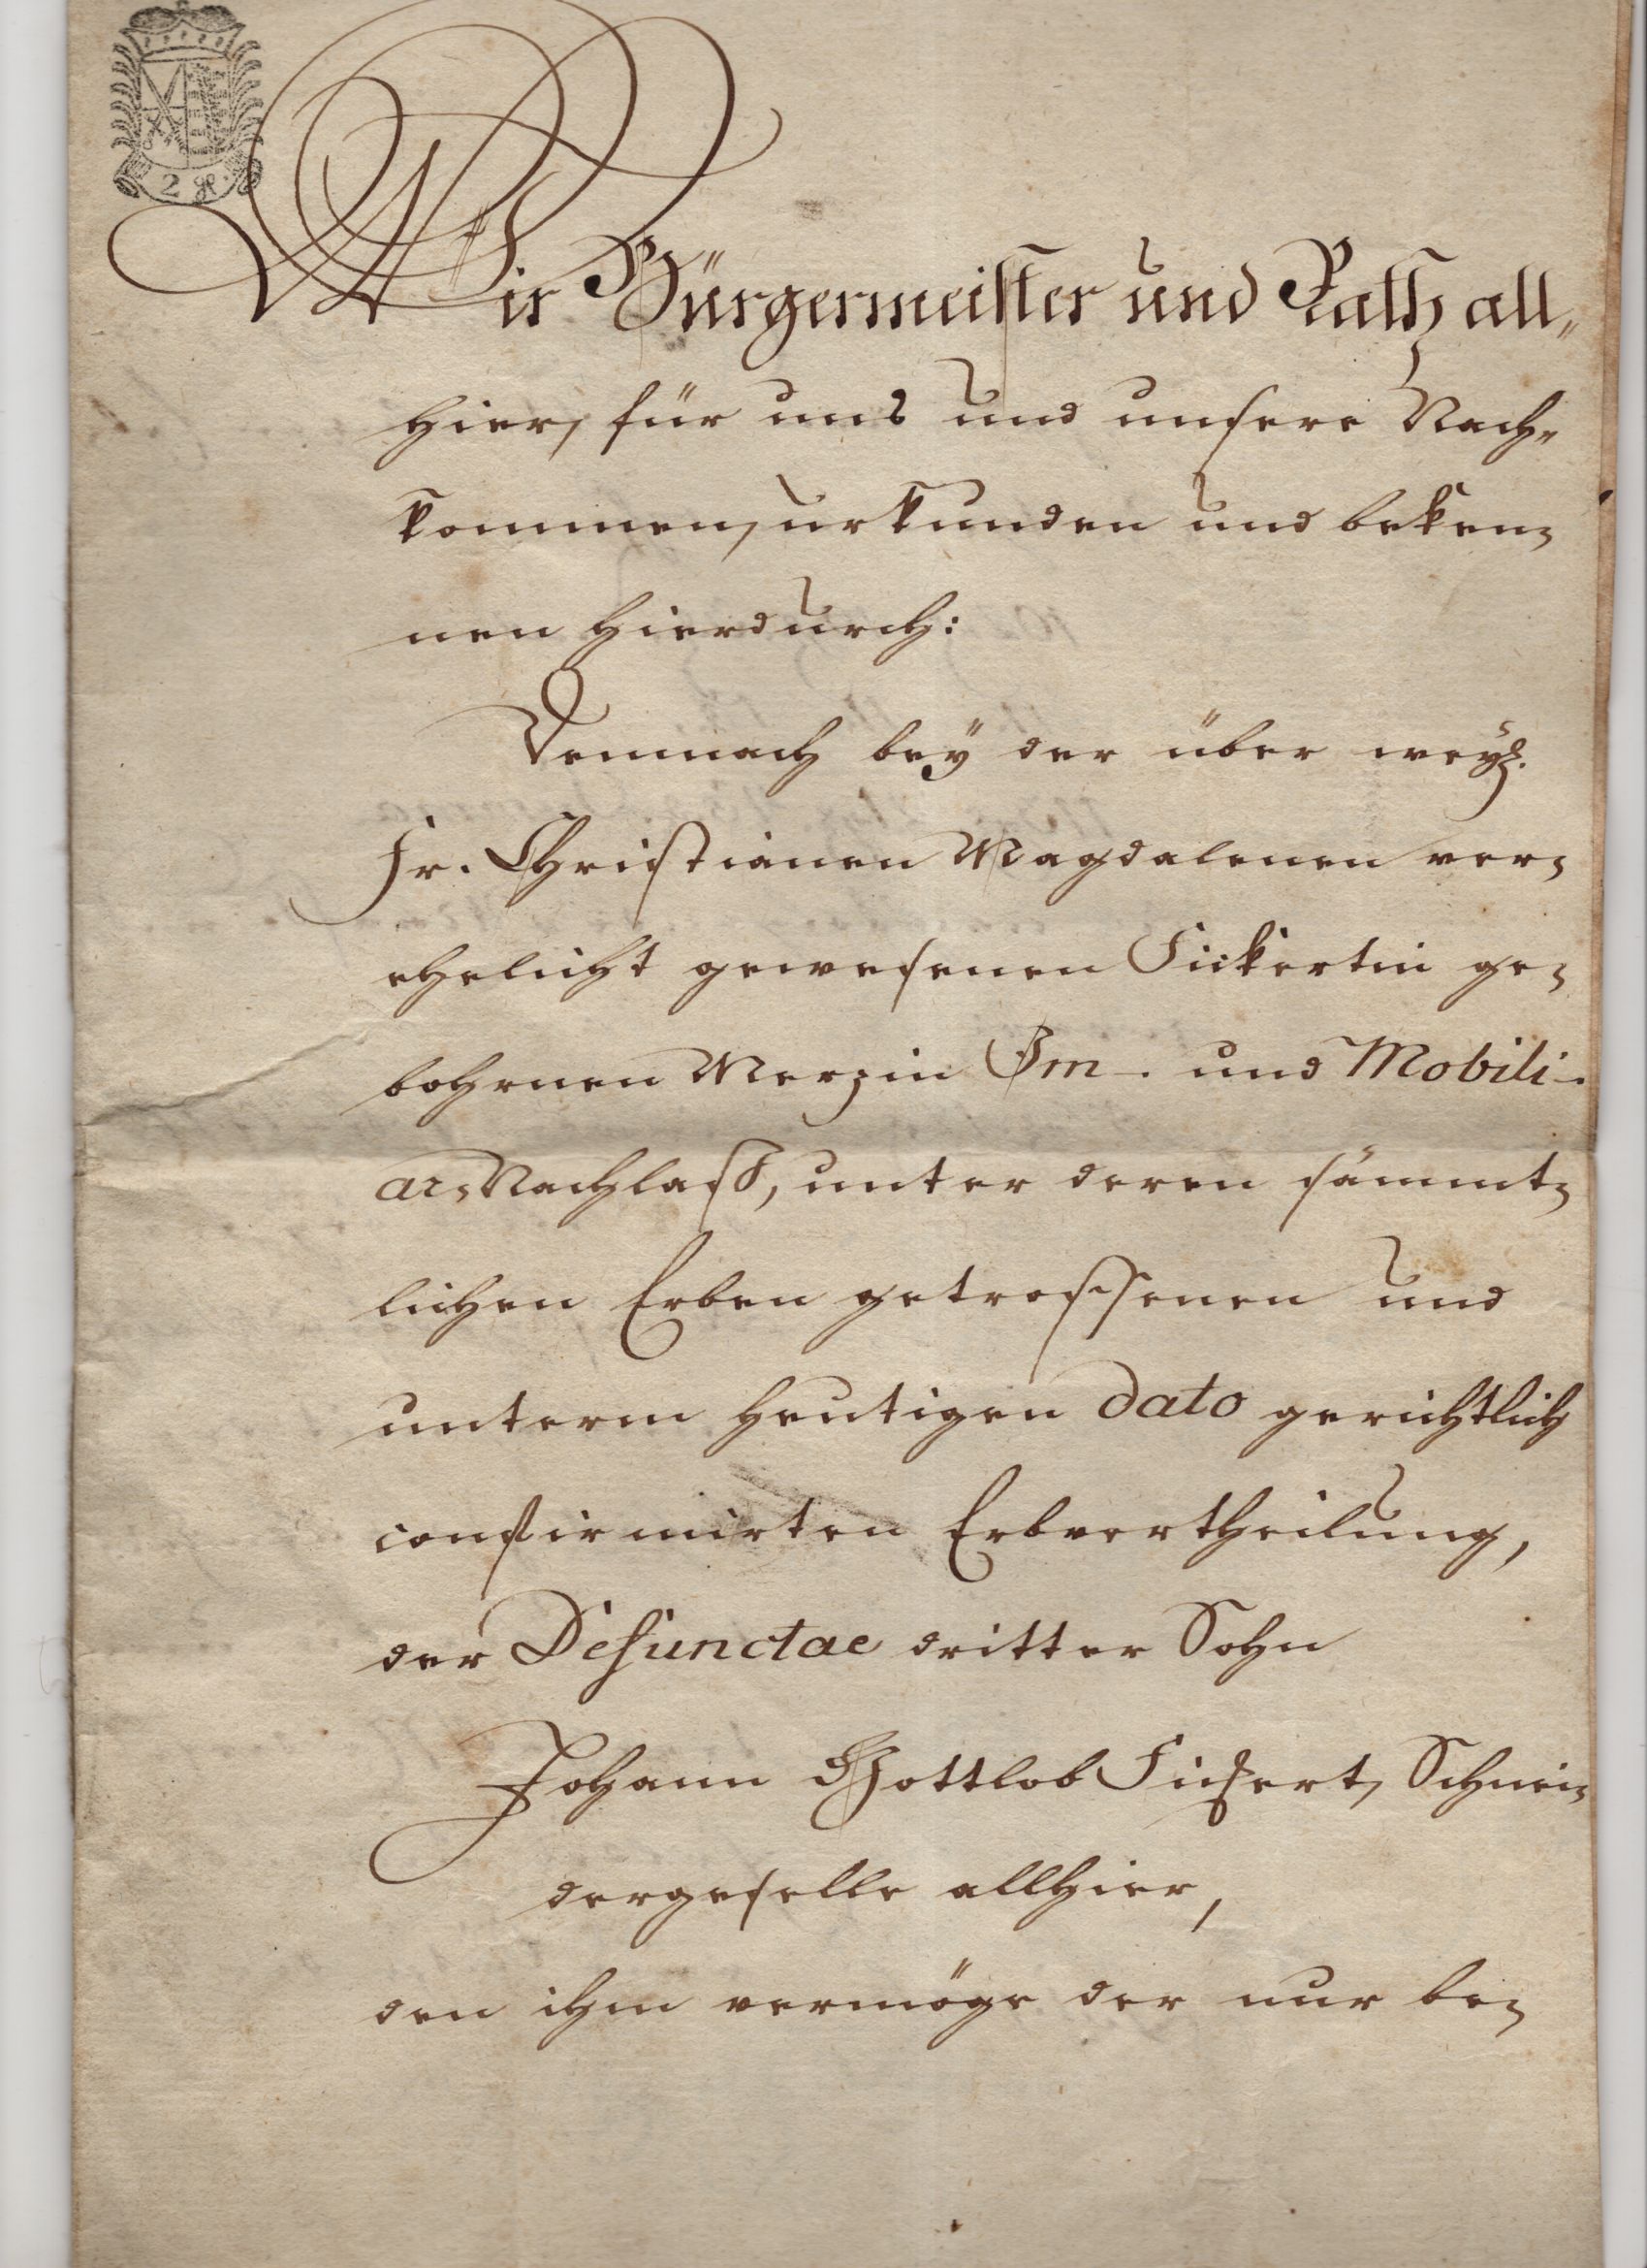 2 gr.
Wir Bürgermeister und Rath all-
hier, für uns und unsere Nach-
kommen, urkunden und beken-
nen hierdurch:
Demnach beÿ der über weyl.
Fr. Christianen Magdalenen ver-
ehelicht gewesenen Fickertin ge-
bohrnen Merzin Im-. und Mobili-.
ar-Nachlaß, unter deren sämmt-
lichen Erben getroffenen und
unterm heutigen dato gerichtlich
confirmirten Erbvertheilung,
der Defunctae dritter Sohn
Johann Gottlob Fickert, Schnei-
dergeselle allhier,
den ihm vermöge der nur be-